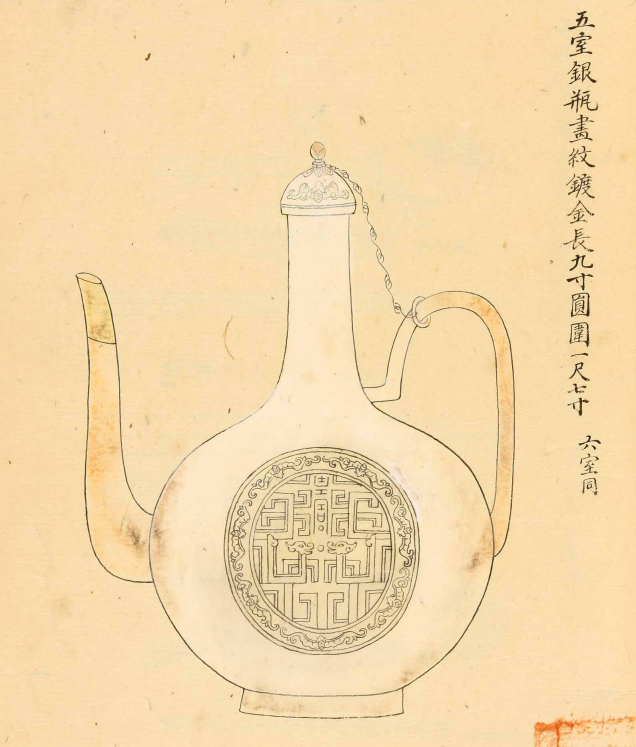 五室銀瓶畫紋鍍金長九寸圓圍一尺七寸
六室同